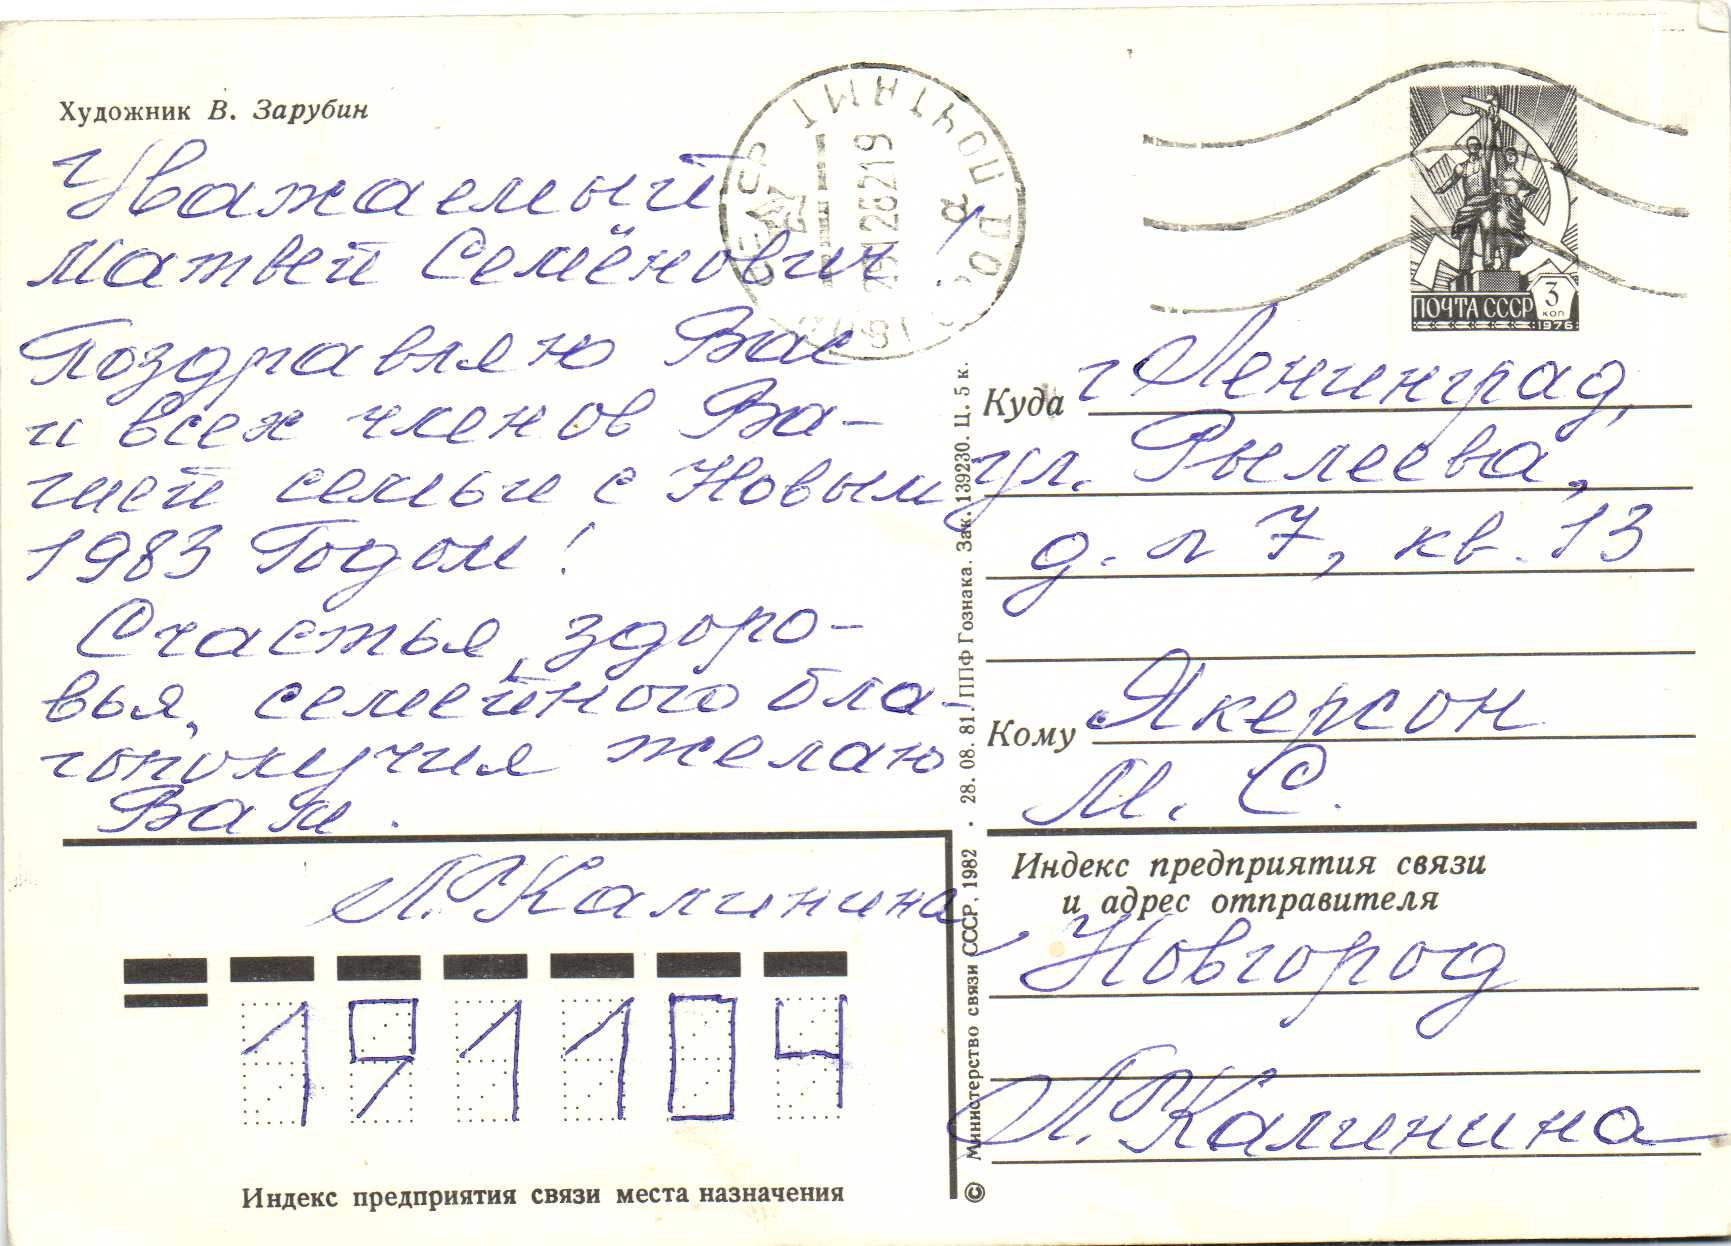 Художник В. Зарубин
Уважаемый
Матвей Семёнович!
Поздравляю Вас
и всех членов Ва-
шей семьи с Новым
1983 Годом!
Счастья, здоро-
вья, семейного бла-
гополучия желаю
Вам.
Л. Калинина
191104
Индекс предприятия связи места назначения
© Министерство связи СССР, 1982 . 28. 08. 81. ППФ Гознака. Зак. 139230. Ц. 5 к.
ПОЧТАМТ
СССР
ПОЧТА СССР 3 КОП
1976
Куда г Ленинград,
ул. Рылеева,
д. n 7, кв. 13
Кому Якерсон
М. С.
Индекс предприятия связи
и адрес отправителя
Новгород
Л. Калинина